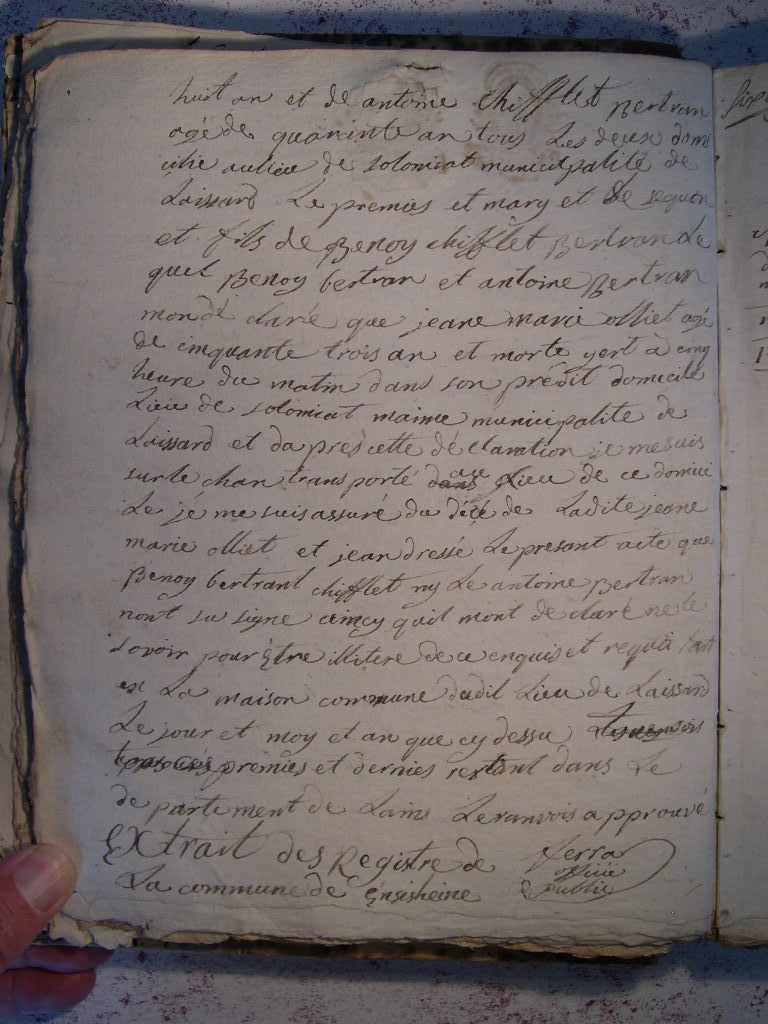 huit an et de antoine chifflet Bertran
agé de quarante an tous Les deux domi
cilie aulieu de solomiat municipalité de
Laissard Le premier et mary et Le segon
et fils de Benoy chifflet Bertran Le
quel Benoy bertran et antoine Bertran
mon dé claré que jeane marie olliet agé
de cinquante trois an et morte yert a cinq
heure du matin dans son prédit domicile
Lieu de solomiat maime municipalite de
Laissard et da pres cette dé claration je me suis
sur le chan transporté au Lieu de ce domici
Le jé me suis assuré du décé de Ladite jeane
marie olliet et jean dressé Le presant acte que
Benoy bertrant chifflet ny Le antoine Bertran
nont su signe aincy quil mont de claré ne le
savoir pour Être illitere de ce enquis et requis fait
en La maison commune dudit Lieu de Laissard
Le jour et moy et an que cy dessu
premier et dernier restant dans Le
de partement de Lains Le ranvois approuvé
Extrait des Registre de ferra
La commune de Ensisheine officié
public